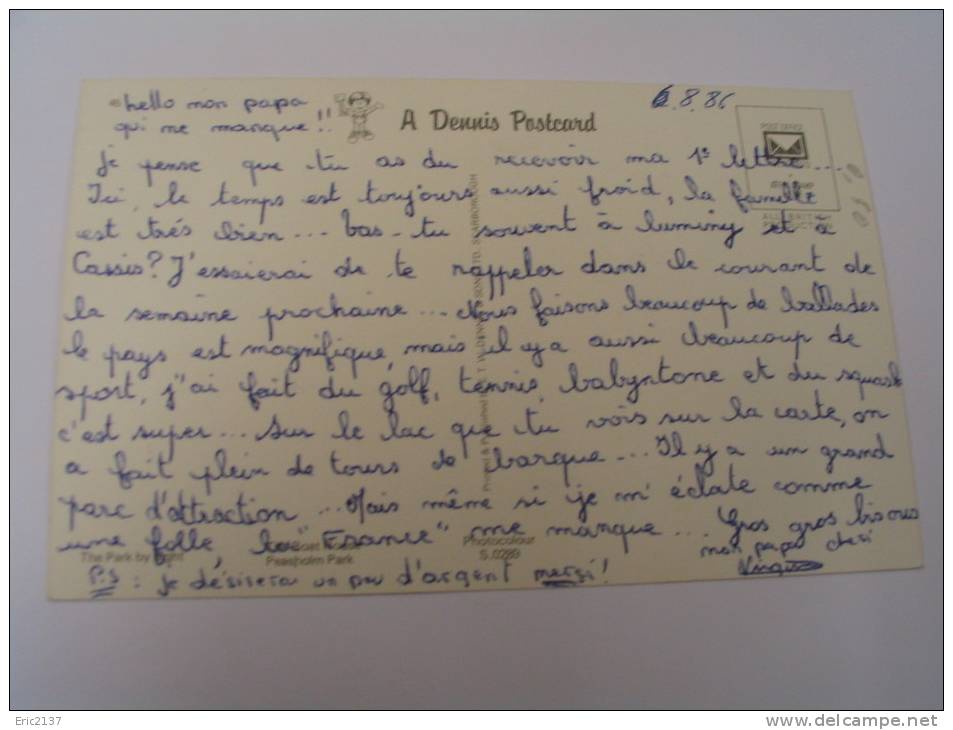 hello mon papa
qui me manque!!
6.8.86
A Dennis Postcard
POST OFFICE
je pense que tu as du recevoir ma 1e lettre...
Ici, le temps est toujours aussi froid, la famille
est trés bien... Vas-tu souvent à luminy et à
Cassis? J'essaierai de te rappeler dans le courant de
la semaine prochaine... Nous faisons beaucoup de ballades
le pays est magnifique, mais il y a aussi beaucoup de
sport, j'ai fait du golf, tennis, babyntone et du squash
c'est super... Sur le lac que tu vois sur la carte, on
a fait plein de tours de barque... Il y a un grand
parc d'attraction... Mais même si je m'éclate comme
une folle, la "France" me manque... Gros gros bisous
mon papa cheri
The Park by
Peasholm Park
Photocolour
S.0289
P.S : je désirera un peu d'argent merçi!
Eric2137
www.delcampe.net